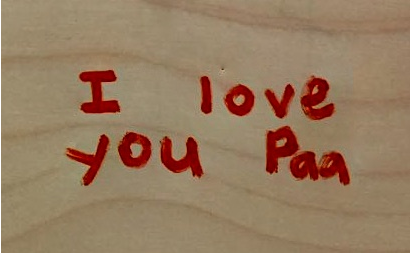 I love
you Paa